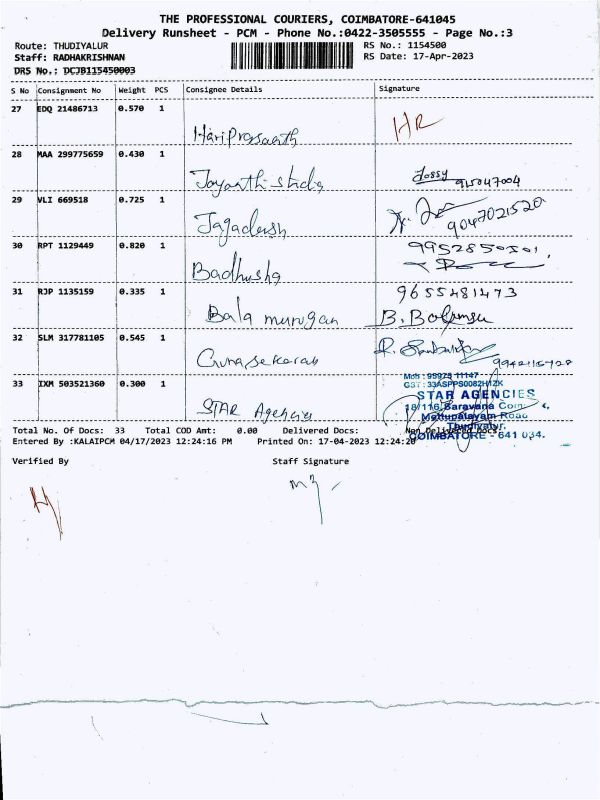 THE PROFESSIONAL COURIERS, COIMBATORE-641045
Delivery Runsheet - PCM - Phone No.:0422-3505555 - Page No.:3
Route: THUDIYALUR RS No.: 1154500
Staff: RADHAKRISHNAN RS Date: 17-Apr-2023
DRS No.: DCJB115450003
S No Consignment No Weight PCS Consignee Details Signature
27 EDQ 21486713 0.570 1
Hariprasanth HR
28 MAA 299775659 0.430 1
Jayanthi
29 VLI 669518 0.725 1
Jagadeesh 9047021520
30 RPT 1129449 0.820 1 9952850501
Badhusha
31 RJP 1135159 0.335 1 9655481473
Bala murugan
32 SLM 317781105 0.545 1
Gunasekaran
33 IXM 503521360 0.300 1
STAR Agencies
STAR AGENCIES
18/116, Saravana
Mettupalayam Road
Thudiyalur,
COIMBATORE - 641 034.
Total No. Of Docs: 33 Total COD Amt: 0.00 Delivered Docs: Non Delivered Docs
Entered By :KALAIPCM 04/17/2023 12:24:16 PM Printed On: 17-04-2023 12:24:20
Verified By Staff Signature